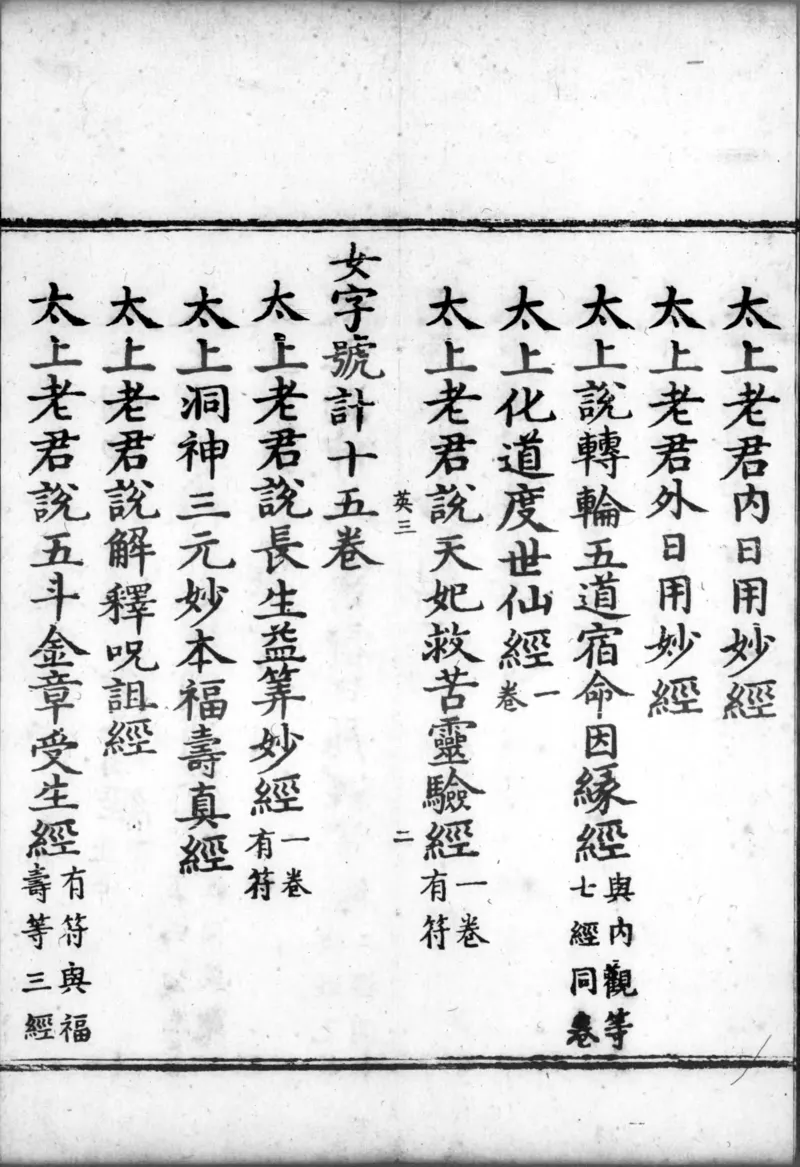 太上老君內日用妙經
太上老君外日用妙經
太上說轉輪五道宿命因緣經與內觀等七經同卷
太上化道度世仙經一卷
太上老君說天妃救苦靈驗經一卷有符
英三 二
女字號計十五卷
太上老君說長生益筭妙經一卷有符
太上洞神三元妙本福壽真經
太上老君說解釋呪詛經
太上老君說五斗金章受生經有符與福壽等三經